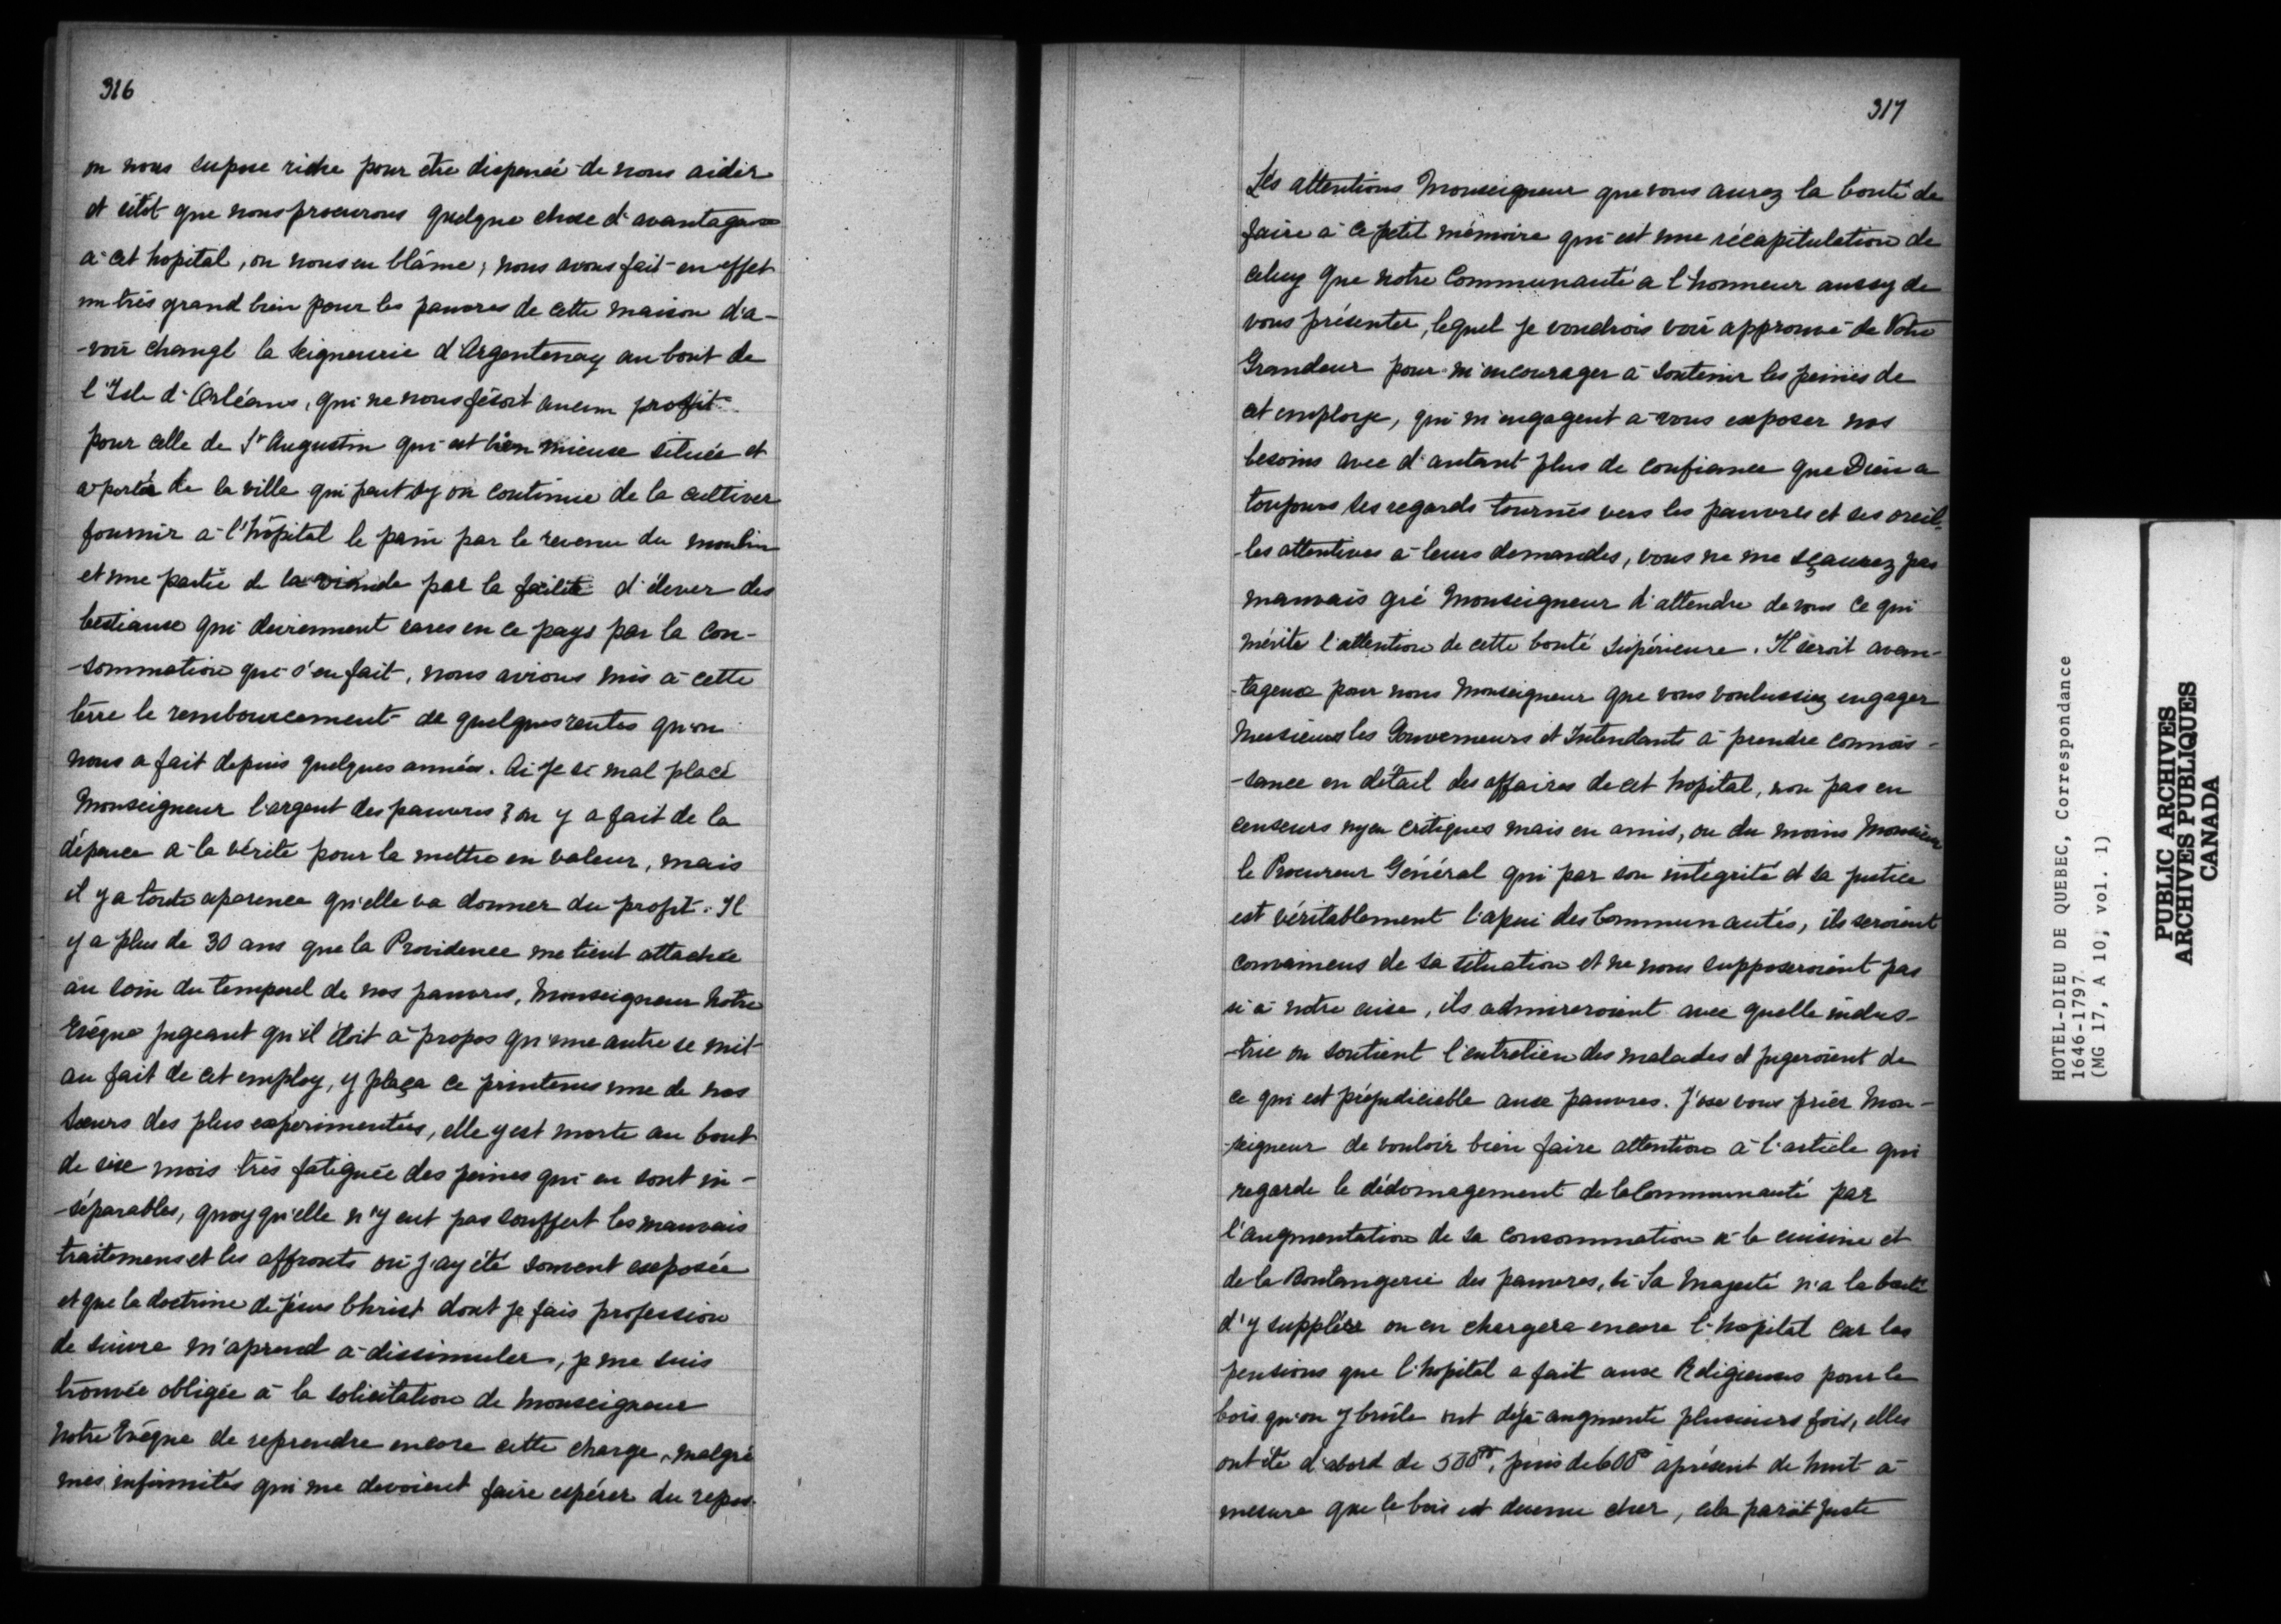 316
on nous supose riche pour etre dispensé de nous aider
et sitôt que nous procurons quelque chose d'avantageux
à cet hopital, on nous en blâme; nous avons fait en effet
un très grand bien pour les pauvres de cette maison d'a-
-voir changé la Seigneurie d'Argentenay au bout de
l'Isle d'Orléans, qui ne nous fésoit aucun profit
pour celle de St Augustin qui est bien mieux située et
à portée de la ville qui peut sy on continue de la cultiver
fournir à l'hôpital le pain par le revenu du moulin
et une partie de la viande par la facilité d'élever des
bestiaux qui deviennent rares en ce pays par la con-
-sommation qui s'en fait, nous avions mis à cette
terre le remboursement de quelques rentes qu'on
nous a fait depuis quelques années. Ai je si mal placé
Monseigneur l'argent des pauvres? on y a fait de la
dépence à la vérité pour la mettre en valeur, mais
il y a toute aparence qu'elle va donner du profit. Il
y a plus de 30 ans que la Providence me tient attachée
au soin du temporel de nos pauvres, Monseigneur notre
Evêque jugeant qu'il étoit à propos qu'une autre se mit
au fait de cet employ, y plaça ce printems une de nos
Sœurs des plus expérimentées, elle y est morte au bout
de six mois très fatiguée des peines qui en sont in-
-séparables, quoy qu'elle n'y eut pas souffert les mauvais
traitemens et les affronts où j'ay été souvent exposée
et que la doctrine de Jésus Christ dont je fais profession
de suivre m'aprend à dissimuler, je me suis
trouvée obligée à la solicitation de Monseigneur
notre Evêque de reprendre encore cette charge, malgré
mes infirmités qui me devoient faire espérer du repos.
317
Les attentions Monseigneur que vous aurez la bonté de
faire à ce petit mémoire qui est une récapitulation de
celuy que notre Communauté a l'honneur aussy de
vous présenter, lequel je voudrois voir approuvé de Votre
Grandeur pour m'encourager à soutenir les peines de
cet employ, qui m'engagent à vous exposer nos
besoins avec d'autant plus de confiance que Dieu a
toujours ses regards tournés vers les pauvres et ses oreil-
-les attentives à leurs demandes, vous ne me sçaurez pas
mauvais gré Monseigneur d'attendre de vous ce qui
mérite l'attention de cette bonté supérieure. Il seroit avan-
-tageux pour nous Monseigneur que vous voulussiez engager
Messieurs les Gouverneurs et Intendants à prendre connois-
-sance en détail des affaires de cet hopital, non pas en
censeurs ny en critiques mais en amis, ou du moins Monsieur
le Procureur Général qui par son intégrité et sa justice
est véritablement l'apui des Communautés, ils seroient
convaincus de sa situation et ne nous supposeroient pas
si à notre aise, ils admireroient avec quelle indus-
-trie on soutient l'entretien des malades et jugeroient de
ce qui est préjudiciable aux pauvres. J'ose vous prier Mon-
-seigneur de vouloir bien faire attention à l'article qui
regarde le dédomagement de la Communauté par
l'augmentation de sa consommation à la cuisine et
de la Boulangerie des pauvres, si Sa Majesté n'a la bonté
d'y suppléer on en chargera encore l'hopital car les
pensions que l'hopital a fait aux Religieuses pour le
bois qu'on y brûle ont déjà augmenté plusieurs fois, elles
ont été d'abord de 500#, puis de 600# à présent de huit à
mesure que le bois est devenu cher, cela paroit juste
HOTEL-DIEU DE QUEBEC, Correspondance
1646-1797
(MG 17, A 10, vol. 1)
PUBLIC ARCHIVES
ARCHIVES PUBLIQUES
CANADA